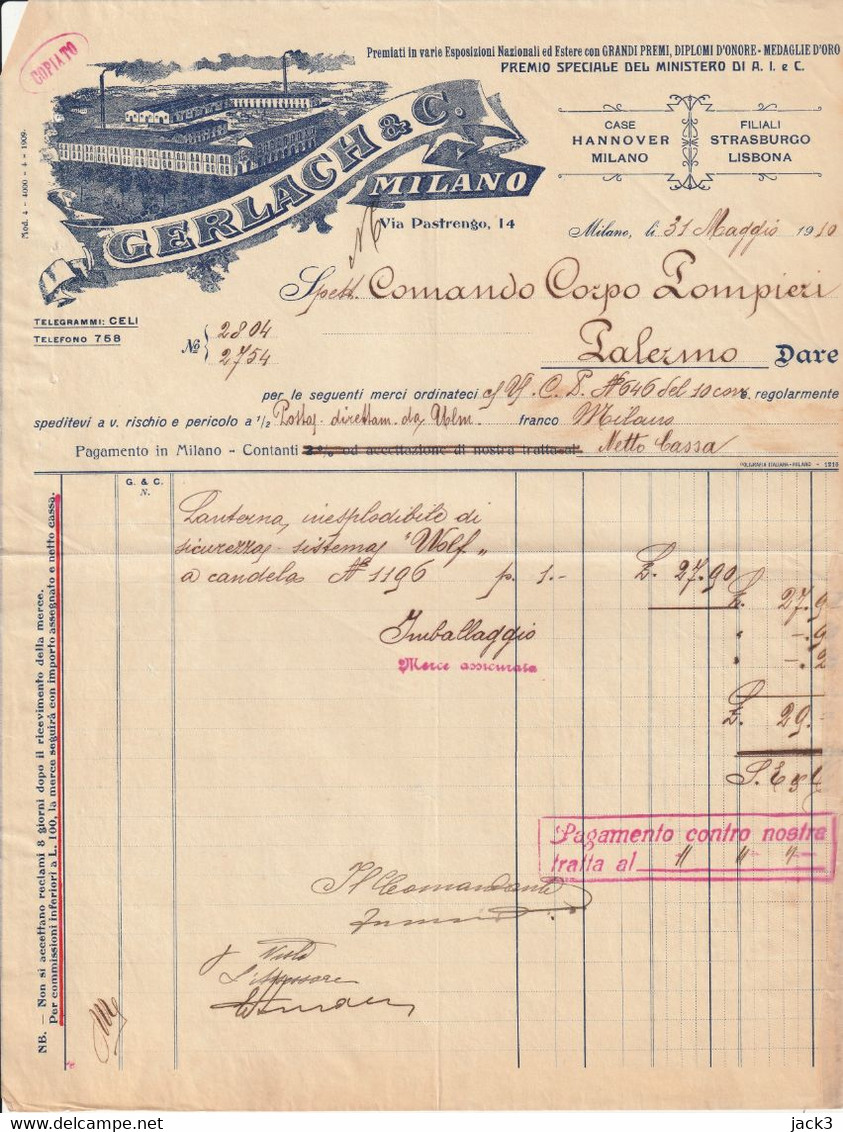 COPIATO
Premiati in varie Esposizioni Nazionali ed Estere con GRANDI PREMI, DIPLOMI D'ONORE - MEDAGLIE D'ORO
PREMIO SPECIALE DEL MINISTERO DI A. I. e C.
CASE FILIALI
HANNOVER STRASBURGO
MILANO LISBONA
GERLACH & C.
MILANO
Via Pastrengo, 14
Mod. 4 - 4000 - 4 - 1909.
Milano, li 31 Maggio 1910
Spett. Comando Corpo Pompieri
Palermo Dare
TELEGRAMMI: CELI
TELEFONO 758
No 2804
2754
per le seguenti merci ordinateci N° 646 del 10 corr. regolarmente
speditevi a v. rischio e pericolo a 1/2 Posta direttam. da Ulm. franco Milano
Pagamento in Milano - Contanti 2% od accettazione di nostra tratta al Netto Cassa
POLIGRAFIA ITALIANA - MILANO - 1210
G. & C.
N.
Lanterna inesplodibile di
sicurezza sistema "Wolf"
a candela N° 1196 p. 1.- £. 27.90
£. 27.9
Imballaggio " -.9
Merce assicurata " -.2
£. 29.-
S.E.
Pagamento contro nostra
tratta al
Il Comandante
Visto
L'Assessore
NB. — Non si accettano reclami 8 giorni dopo il ricevimento della merce.
Per commissioni inferiori a L. 100, la merce seguirà con importo assegnato e netto cassa.
jack3